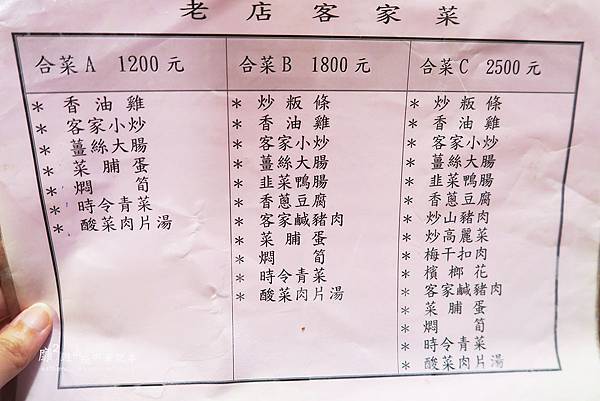 老店客家菜
合菜A 1200元
* 香油雞
* 客家小炒
* 薑絲大腸
* 菜脯蛋
* 燜筍
* 時令青菜
* 酸菜肉片湯
合菜B 1800元
* 炒粄條
* 香油雞
* 客家小炒
* 薑絲大腸
* 韭菜鴨腸
* 香蔥豆腐
* 客家鹹豬肉
* 菜脯蛋
* 燜筍
* 時令青菜
* 酸菜肉片湯
合菜C 2500元
* 炒粄條
* 香油雞
* 客家小炒
* 薑絲大腸
* 韭菜鴨腸
* 香蔥豆腐
* 炒山豬肉
* 炒高麗菜
* 梅干扣肉
* 檳榔花
* 客家鹹豬肉
* 菜脯蛋
* 燜筍
* 時令青菜
* 酸菜肉片湯